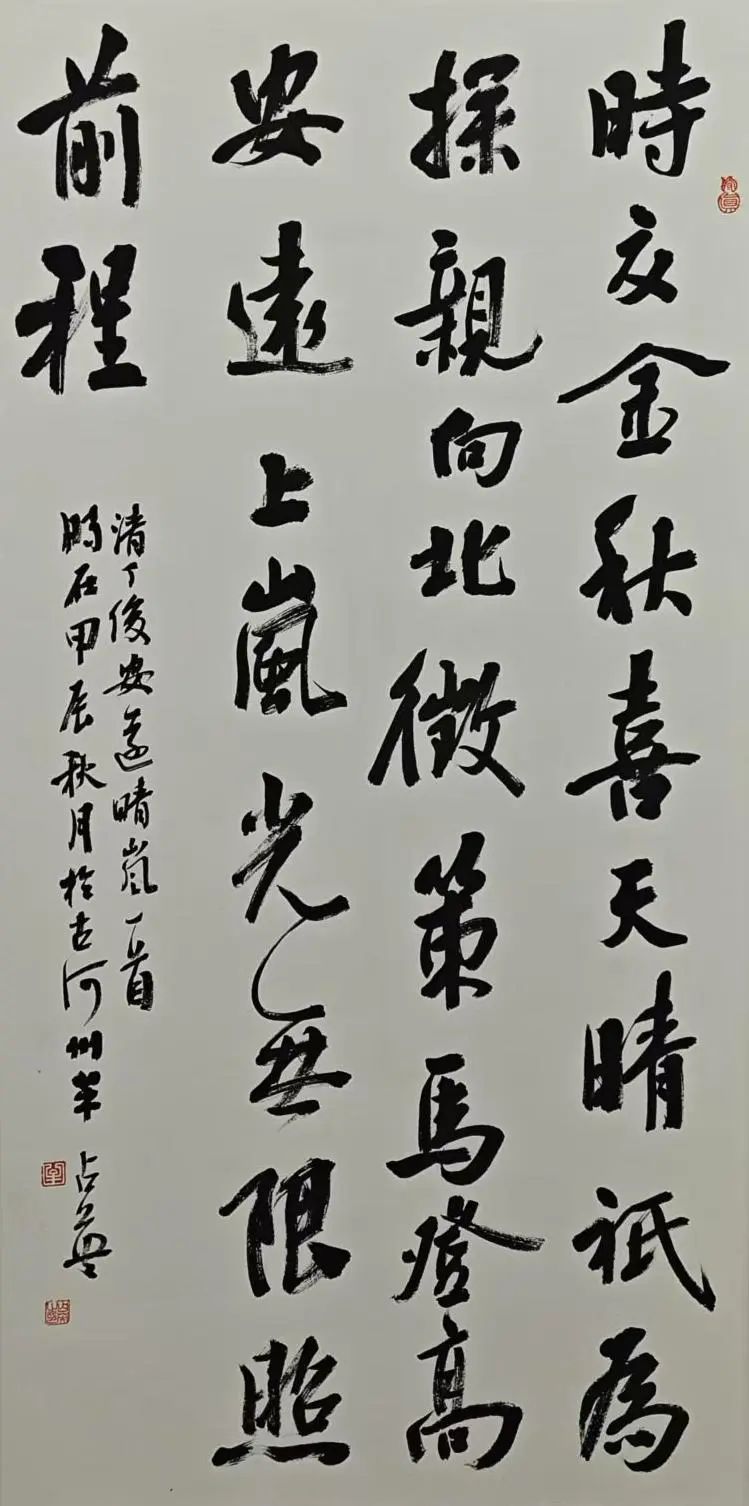 時交金秋喜天晴祇為
探親向北徵策馬登高
安遠上嵐光無限照
前程
清丁俊安遠晴嵐一首
時在甲辰秋月於古河州 占英